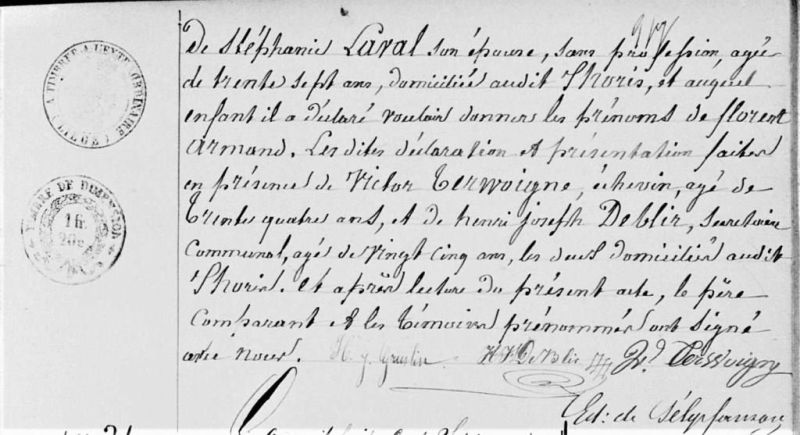 De Stéphanie Laval son épouse, sans profession, agée
de trente sept ans, domiciliée audit Thoris, et auquel
enfant il a déclaré vouloir donner les prénoms de florent
armand. Les dites déclaration et présentation faites
en présence de Victor Terwoigne, échevin, agé de
trente quatre ans, et de henri joseph Deblir, Secretaire
Communal, agé de vingt cinq ans, les deux domiciliés audit
Thoris. Et après lecture du présent acte, le père
Comparant et les témoins prénommés ont signé
avec nous.
Ed: de Sélys
A TIMBRER A L'EXTRAORDINAIRE
(LIEGE)
TIMBRE DE DIMENSION
1 fr
20c